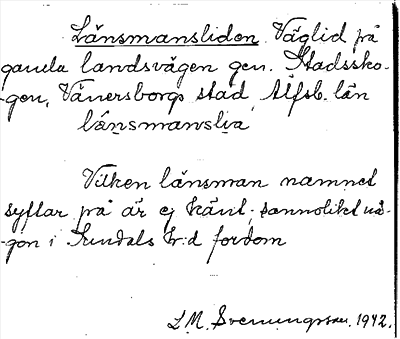 Länsmansliden Väglid på
gamla landsvägen gen. Stadssko-
gen, Vänersborgs stad Älfsb. län
länsmanslia
Vilken länsman namnet
syftar på är ej känt; sannolikt nå-
gon i Sundals h:d fordom
L M. Svenungsson. 1942.